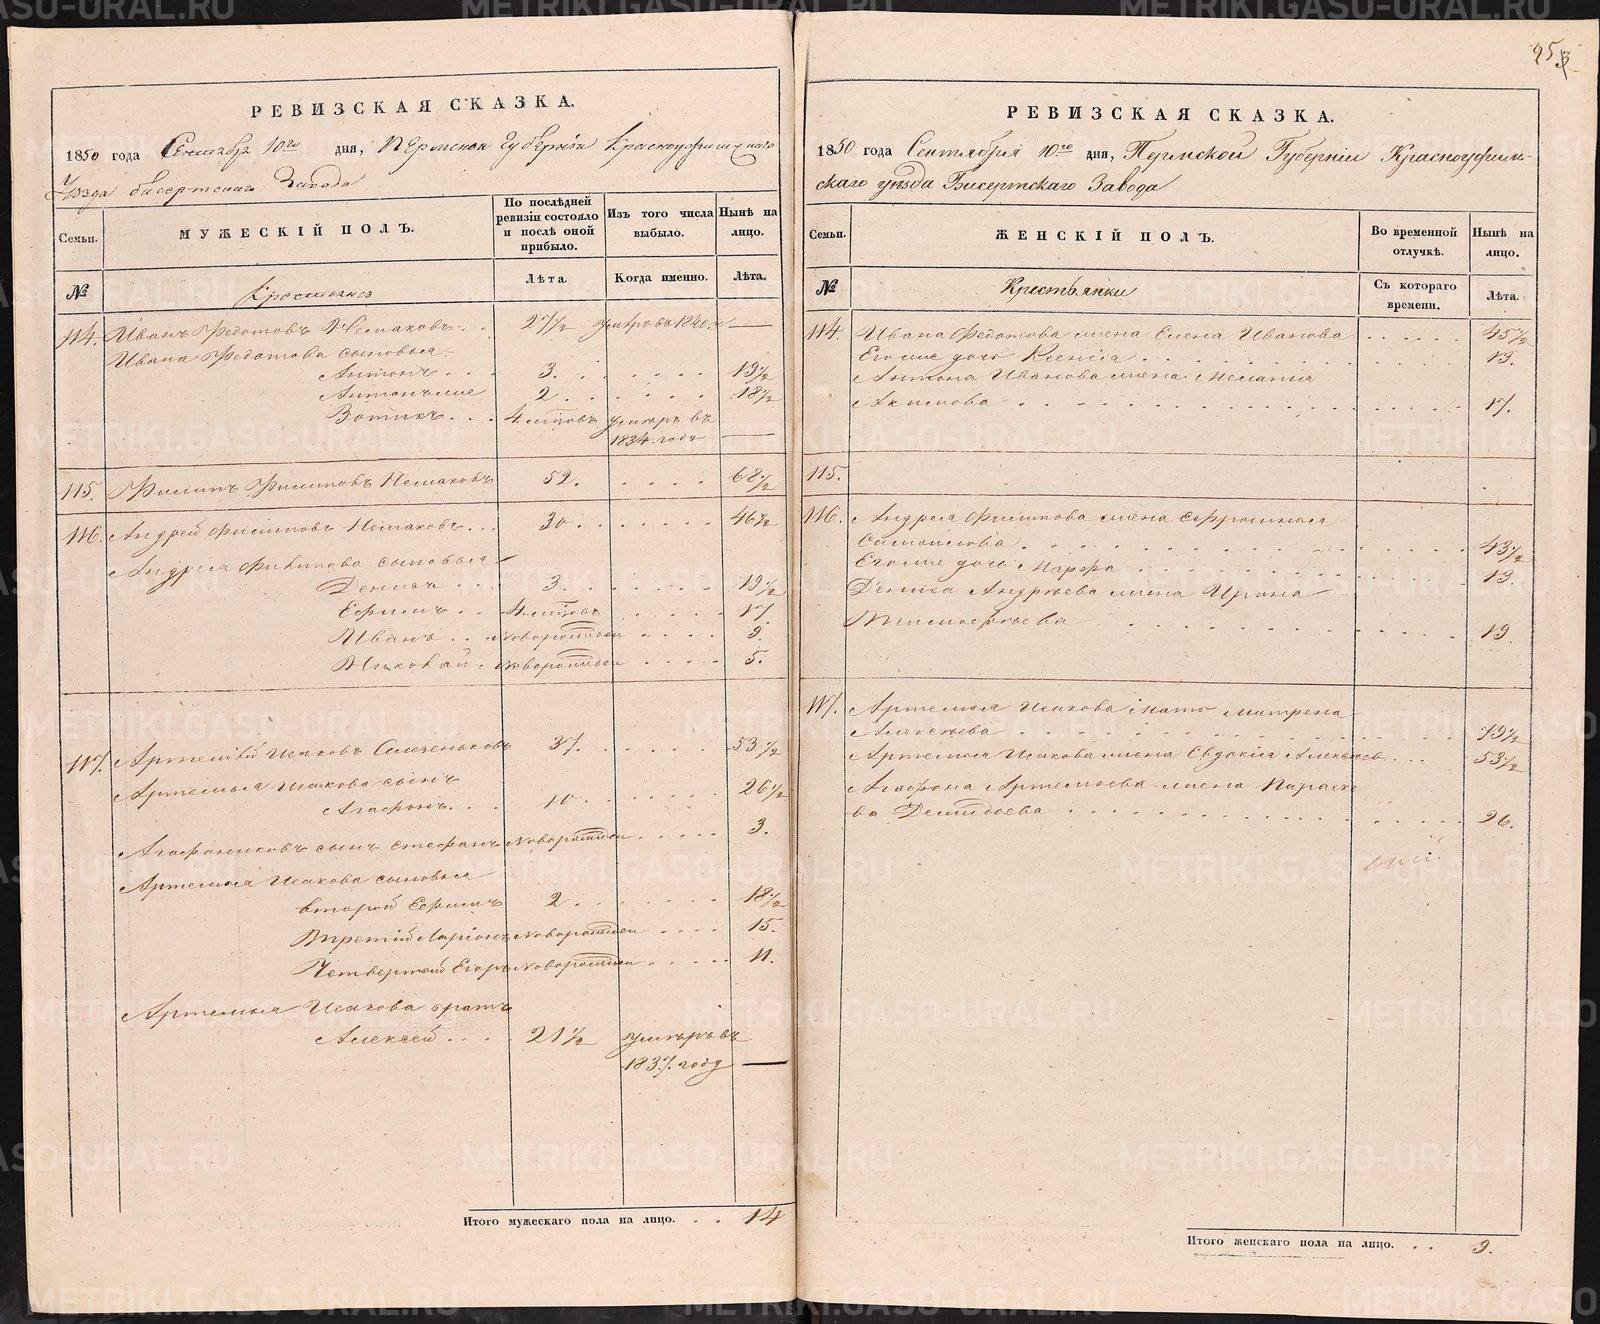 253
РЕВИЗСКАЯ СКАЗКА.
1850 года Сентября 10го дня, Пермской Губернии Красноуфимскаго
Уезда бисертскаго Завода
Семьи.
МУЖЕСКІЙ ПОЛЪ.
По послѣдней ревизіи состояло и послѣ оной прибыло.
Изъ того числа выбыло.
Нынѣ на лицо.
№
Крестьяне
Лѣта.
Когда именно.
Лѣта.
114. Иванъ Федотовъ 27 1/2 умеръ въ 1840 —
Ивана Федотова сыновья
Антонъ 3. 19 1/2
Антонъ же 2. 18 1/2
Зотикъ 4 умеръ въ
1834 году —
115. Филипъ Филиповъ 52. 68 1/2
116. Андрей Филиповъ 30. 46 1/2
Андрея Филипова сыновья
Денисъ 3. 19 1/2
Ефимъ 17.
Иванъ новорожден 9.
Николай новорожден 5.
117. Артемій Исаковъ 37. 53 1/2
Артемья Исакова сынъ
Агафонъ 10. 26 1/2
сынъ Стефанъ новорожден 3.
Артемья Исакова сыновья
второй Ефимъ 2. 18 1/2
Третій Ларіонъ новорожден 15.
Четвертый Егоръ новорожден 11.
Артемья Исакова братъ
Алексей 21 1/2 умеръ въ
1837 году —
Итого мужескаго пола на лицо. 14
РЕВИЗСКАЯ СКАЗКА.
1850 года Сентября 10го дня, Пермской Губерніи Красноуфим-
скаго уезда Бисертскаго Завода
Семьи.
ЖЕНСКІЙ ПОЛЪ.
Во временной отлучкѣ.
Нынѣ на лицо.
№
Крестьянки
Съ котораго времени.
Лѣта.
114. Ивана Федотова жена Елена Иванова 45 1/2
Его же дочь Ксенія 13.
Антона Иванова жена Меланія
Акимова 17.
115.
116. Андрея Филипова жена
Самоилова 43 1/2
Его же дочь Марфа 13.
Дениса Андреева жена Ирина
Тимофеева 19.
117. Артемья Исакова мать Матрена
Алексеева 79 1/2
Артемья Исакова жена Евдокія Алексеев 53 1/2
Агафона Артемьева жена Параске
ва Демидова 26.
Итого женскаго пола на лицо. 9.
METRIKI.GASO-URAL.RU